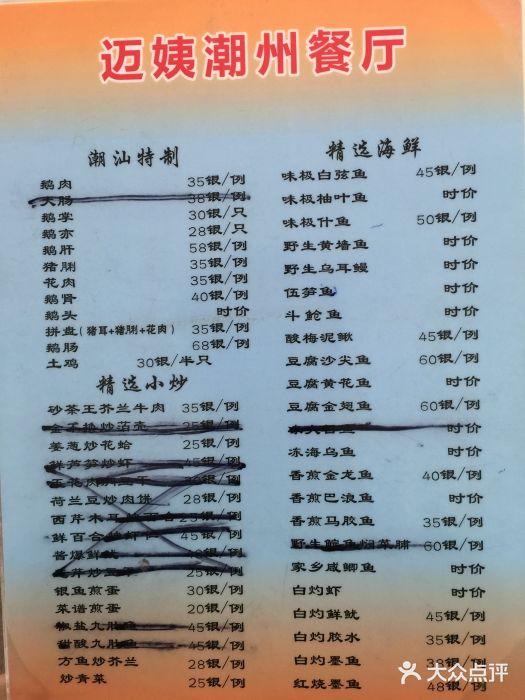 迈姨潮州餐厅
潮汕特制
鹅肉 35银/例
大肠 38银/例
鹅掌 30银/只
鹅亦 28银/只
鹅肝 58银/例
猪脷 35银/例
花肉 35银/例
鹅肾 40银/例
鹅头 时价
拼盘(猪耳+猪脷+花肉) 35银/例
鹅肠 68银/例
土鸡 30银/半只
精选小炒
砂茶王芥兰牛肉 35银/例
25银/例
姜葱炒花蛤 25银/例
鲜芦笋炒虾 45银/例
荷兰豆炒肉饼 28银/例
西芹木耳
鲜百合
酱爆鲜鱿
25银/例
银鱼煎蛋 30银/例
菜谱煎蛋 20银/例
椒盐九肚鱼 45银/例
甜酸九肚鱼 45银/例
方鱼炒芥兰 28银/例
炒青菜 25银/例
精选海鲜
味极白弦鱼 45银/例
味极柚叶鱼 时价
味极什鱼 50银/例
野生黄墙鱼 时价
野生乌耳鳗 时价
伍笋鱼 时价
斗鲳鱼 时价
酸梅泥鳅 45银/例
豆腐沙尖鱼 60银/例
豆腐黄花鱼 时价
豆腐金翅鱼 60银/例
时价
冻海乌鱼 时价
香煎金龙鱼 40银/例
香煎巴浪鱼 时价
香煎马胶鱼 35银/例
焖菜脯 60银/例
家乡咸鲫鱼 时价
白灼虾 时价
白灼鲜鱿 45银/例
白灼胶水 35银/例
白灼墨鱼 38银/例
红烧墨鱼 48银/例
大众点评